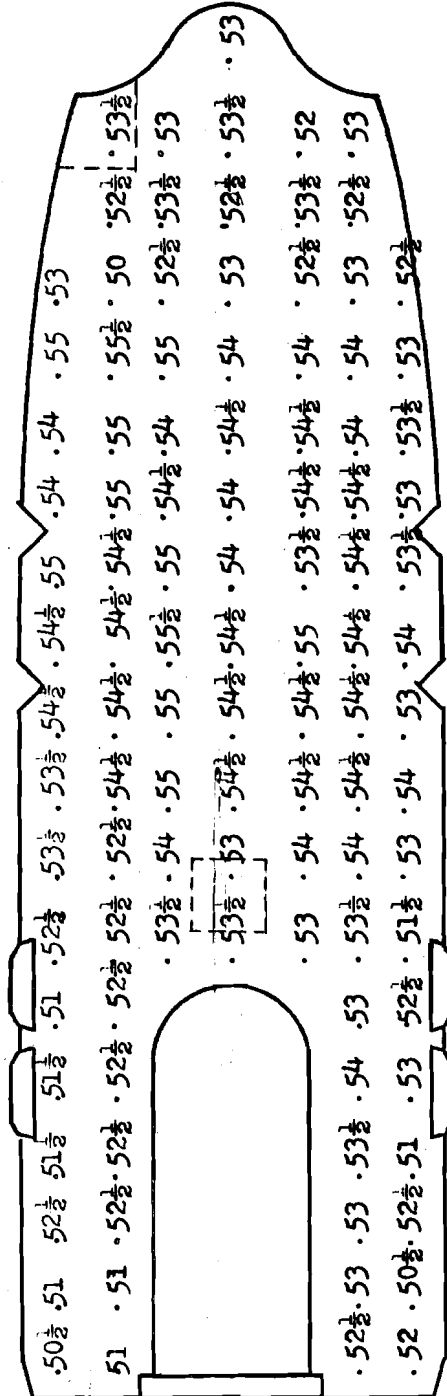 .50½ .51 .52½ .51½ .51½ .51 .52½ .53½ .53½ .54½ .54½ .55 .54 .54 .55 .53
51 .51 .52½ .52½ .52½ .52½ 52½ .52½ .54½ .54½ .54½ .54½ .55 .55 .55½ .50 .52½ .53½
.53½ .54 .55 .55 .55½ .55 .54½ .54 .55 .52½ .53½ .53
.53½ .53 .54½ .54½ .54½ .54 .54 .54½ .54 .53 .52½ .53½ .53
.53 .54 .54½ .54½ .55 .53½ .54½ .54½ .54 .52½ .53½ .52
.52½ .53 .53 .53½ .54 .53 .53½ .54 .54½ .54½ .54½ .54½ .54½ .54 .54 .53 .52½ .53
.52 .50½ .52½ .51 .53 52½ .51½ .53 .54 .53 .54 .53½ .53 .53½ .53 .52½